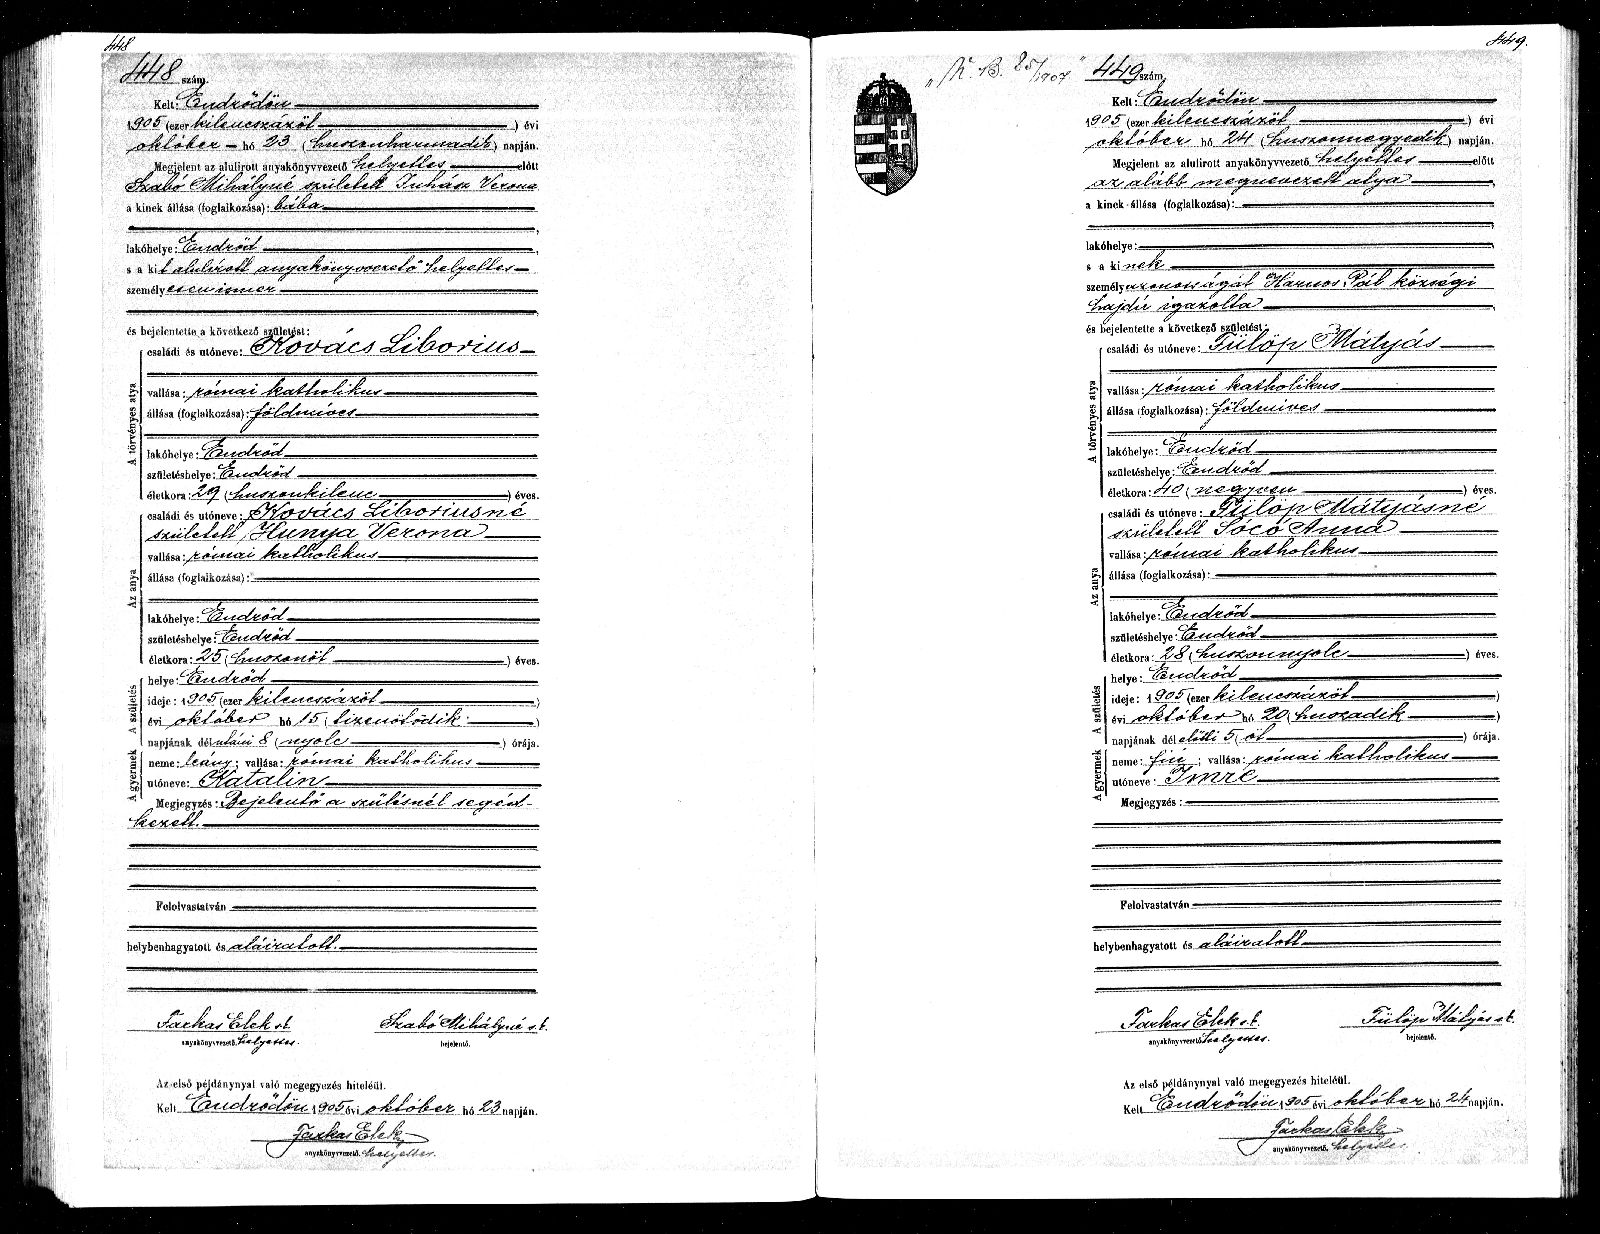 448
448 szám.
Kelt: Endrődön
1905 (ezer kilenczszázöt) évi
október hó 23 (huszonharmadik) napján.
Megjelent az alulirott anyakönyvvezető helyettes előtt
Szabó Mihályné született Juhász Verona
a kinek állása (foglalkozása): bába
lakóhelye: Endrőd
s a kit alulírott anyakönyvvezető helyettes
személyesen ismer
és bejelentette a következő születést:
A törvényes atya
családi és utóneve: Kovács Liborius
vallása: római katholikus
állása (foglalkozása): földmíves
lakóhelye: Endrőd
születéshelye: Endrőd
életkora: 29 (huszonkilenc) éves.
Az anya
családi és utóneve: Kovács Liboriusné
született Hunya Verona
vallása: római katholikus
állása (foglalkozása):
lakóhelye: Endrőd
születéshelye: Endrőd
életkora: 25 (huszonöt) éves.
A születés
helye: Endrőd
ideje: 1905 (ezer kilencszázöt)
évi október hó 15 (tizenötödik)
napjának délutáni 8 (nyolc) órája.
A gyermek
neme: leány; vallása: római katholikus
utóneve: Katalin
Megjegyzés: Bejelentő a szülésnél segéd-
kezett.
Felolvastatván
helybenhagyatott és aláiratott.
Farkas Elek s.k. Szabó Mihályné s.k.
anyakönyvvezető helyettes. bejelentő.
Az első példánynyal való megegyezés hiteléül.
Kelt Endrődön 1905 évi október hó 23 napján.
Farkas Elek
anyakönyvvezető. helyettes.
449.
449 szám.
Kelt: Endrődön
1905 (ezer kilencszázöt) évi
október hó 24 (huszonnegyedik) napján.
Megjelent az alulirott anyakönyvvezető helyettes előtt
az alább megnevezett atya
a kinek állása (foglalkozása):
lakóhelye:
s a kinek
személyazonosságát Harnos Pál községi
hajdú igazolta
és bejelentette a következő születést:
A törvényes atya
családi és utóneve: Fülöp Mátyás
vallása: római katholikus
állása (foglalkozása): földmíves
lakóhelye: Endrőd
születéshelye: Endrőd
életkora: 40 (negyven) éves.
Az anya
családi és utóneve: Fülöp Mátyásné
született Soczó Anna
vallása: római katholikus
állása (foglalkozása):
lakóhelye: Endrőd
születéshelye: Endrőd
életkora: 28 (huszonnyolc) éves.
A születés
helye: Endrőd
ideje: 1905 (ezer kilencszázöt)
évi október hó 20 (huszadik)
napjának délelőtti 5 (öt) órája.
A gyermek
neme: fiú; vallása: római katholikus
utóneve: Imre
Megjegyzés:
Felolvastatván
helybenhagyatott és aláiratott
Farkas Elek s.k. Fülöp Mátyás s.k.
anyakönyvvezető helyettes. bejelentő.
Az első példánynyal való megegyezés hiteléül.
Kelt Endrődön 1905 évi október hó 24 napján.
Farkas Elek
anyakönyvvezető. helyettes